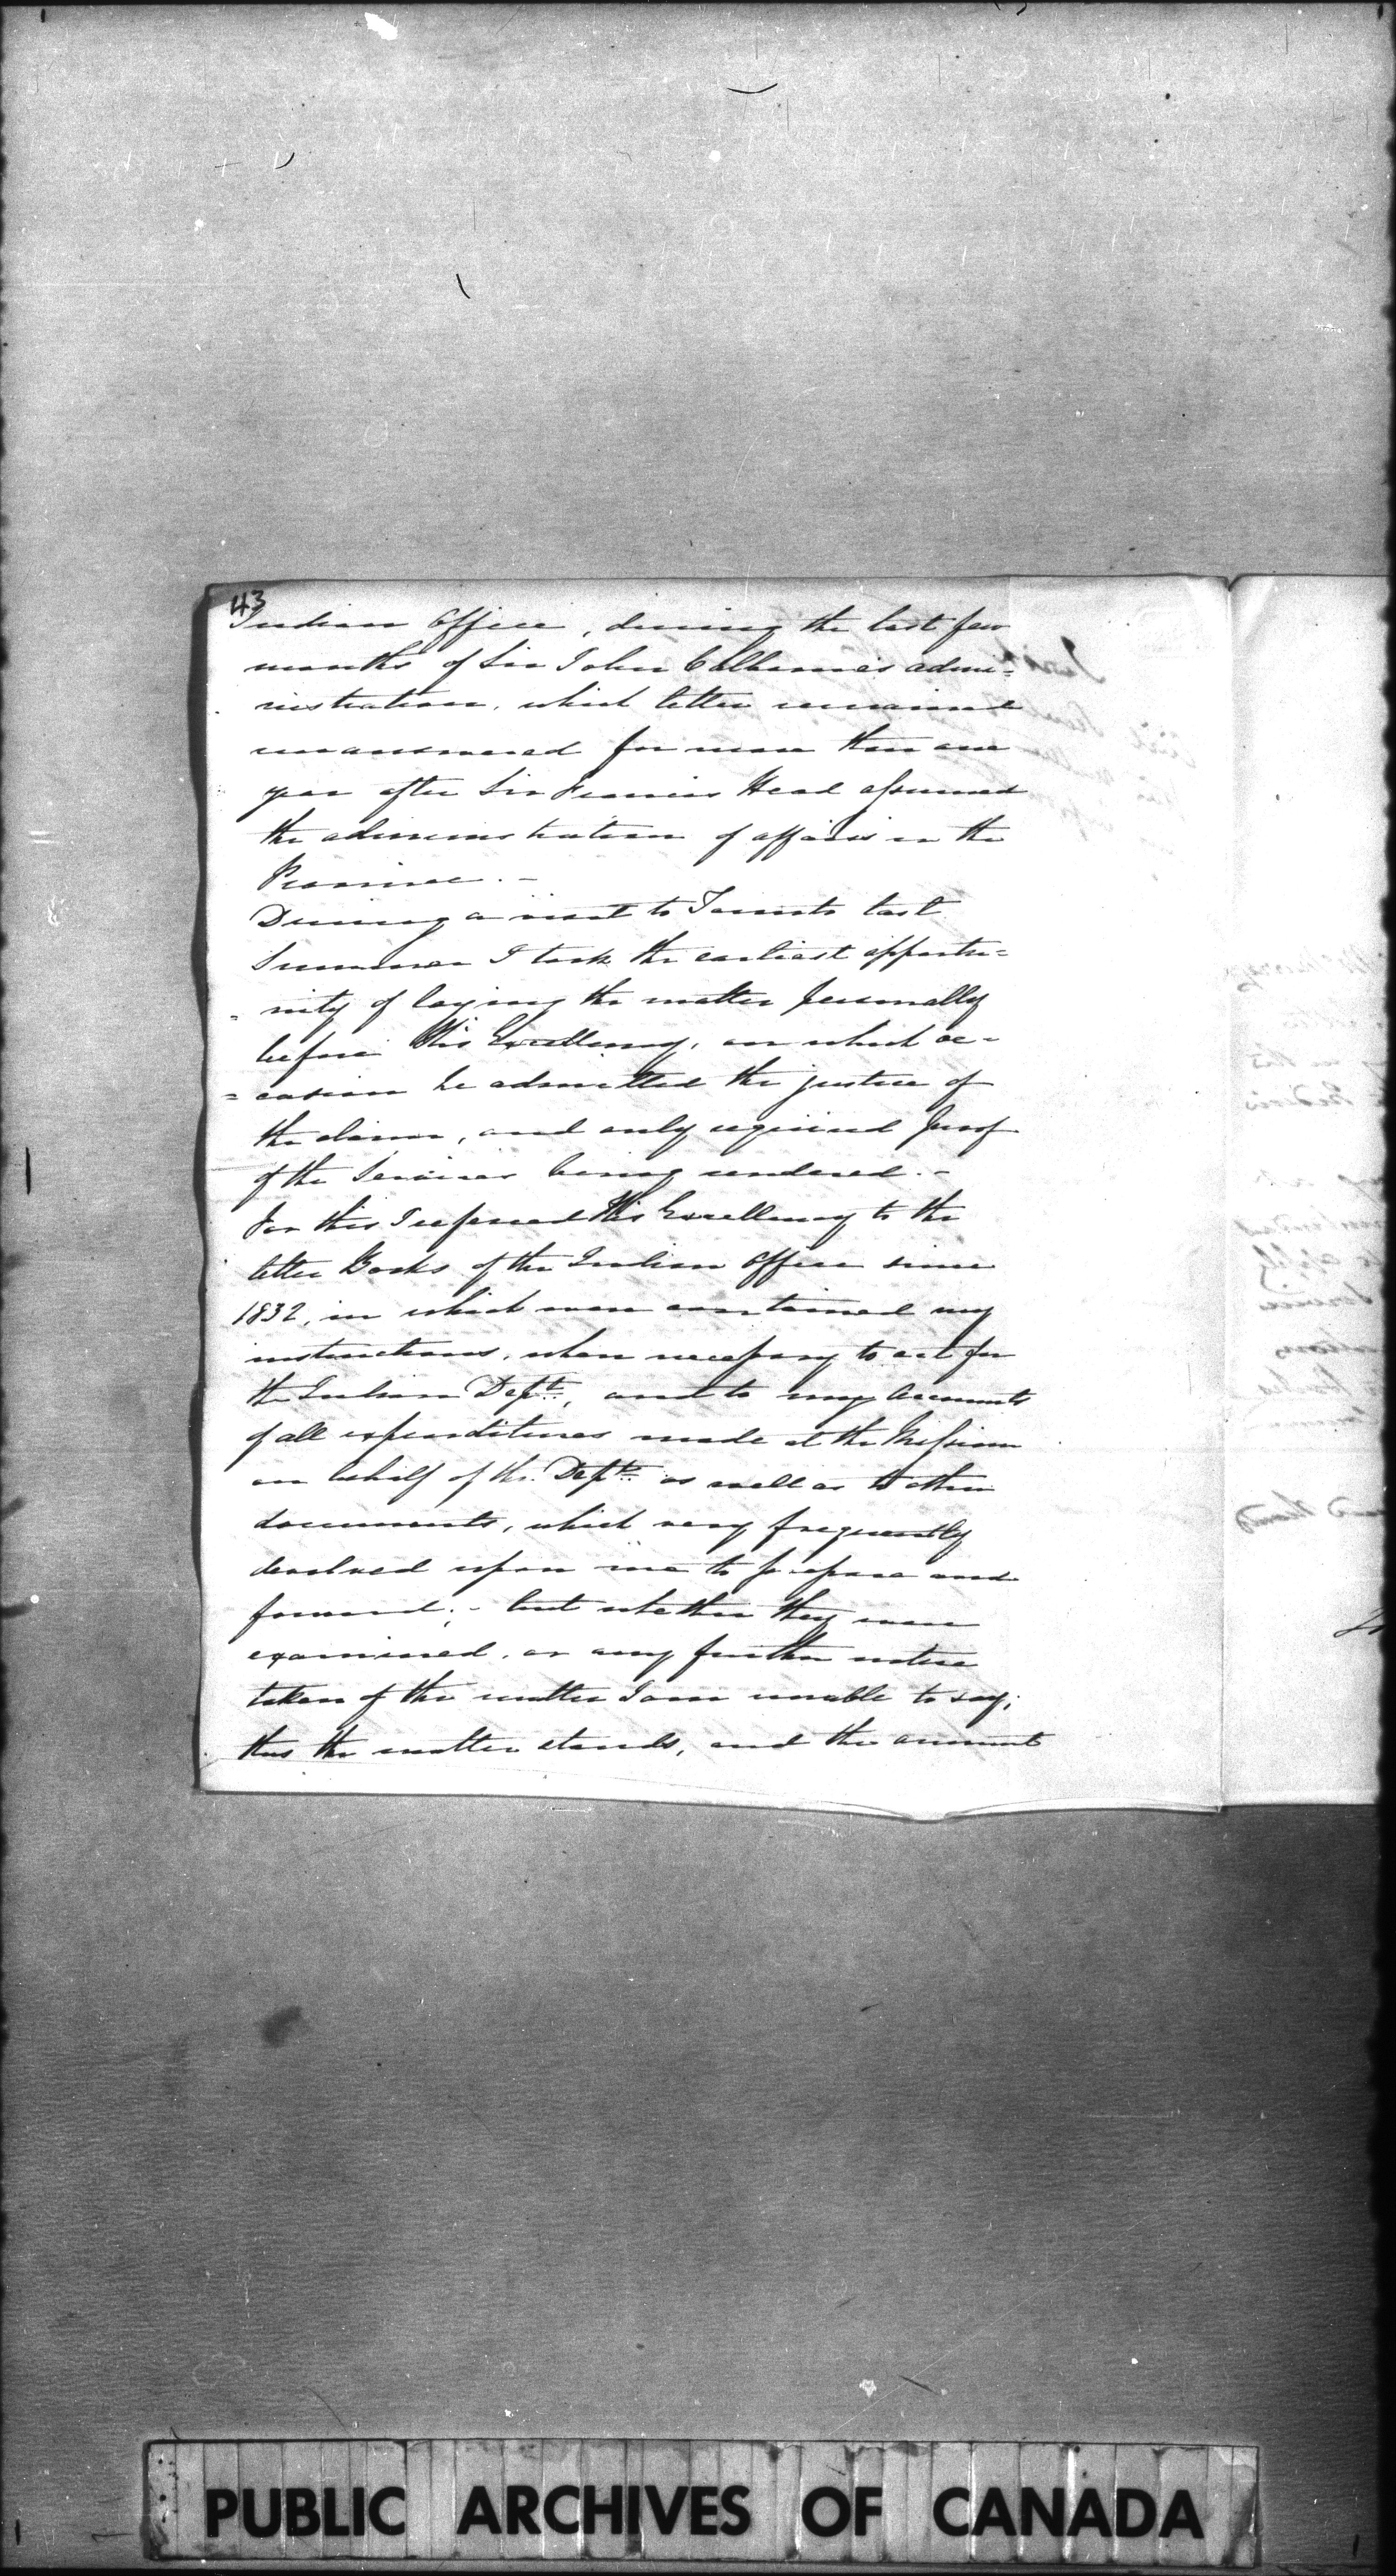 43
Indian Office, during the last few
months of Sir John Colborne's admi=
nistration, which letter remained
unanswered for more than one
year after Sir Francis Head assumed
the administration of affairs in the
Province. -
During a visit to Toronto last
Summer I took the earliest opportu=
= nity of laying the matter personally
before His Excellency, on which oc=
= casion he admitted the justice of
the claim, and only required proof
of the Services being rendered. -
For this I referred His Excellency to the
letter Books of the Indian Office since
1832, in which were contained my
instructions, when necessary to act for
the Indian Dept., and to my Accounts
of all expenditures made at the Mission
on behalf of the Dept. as well as to other
documents, which very frequently
devolved upon me to prepare and
forward; - but whether they were
examined, or any further notice
taken of the matter I am unable to say;
thus the matter stands, and the amount
PUBLIC ARCHIVES OF CANADA